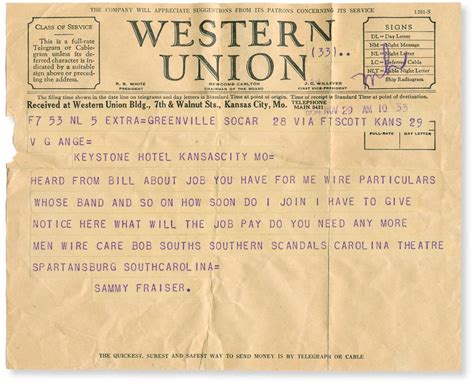 THE COMPANY WILL APPRECIATE SUGGESTIONS FROM ITS PATRONS CONCERNING ITS SERVICE
1201-S
CLASS OF SERVICE
This is a full-rate Telegram or Cablegram unless its deferred character is indicated by a suitable sign above or preceding the address.
WESTERN UNION
(33)..
R. B. WHITE
PRESIDENT
NEWCOMB CARLTON
CHAIRMAN OF THE BOARD
J. C. WILLEVER
FIRST VICE-PRESIDENT
SIGNS
DL = Day Letter
NM = Night Message
NL = Night Letter
LC = Deferred Cable
NLT = Cable Night Letter
Ship Radiogram
The filing time as shown in the date line on full-rate telegrams and day letters, and the time of receipt at destination as shown on all messages, is STANDARD TIME.
Received at Western Union Bldg., 7th & Walnut Sts., Kansas City, Mo.
TELEPHONE
MAIN 6421
NOV 29 AM 10 53
F7 53 NL 5 EXTRA=GREENVILLE SOCAR 28 VIA FTSCOTT KANS 29
FULL-RATE
DAY LETTER
V G ANGE=
KEYSTONE HOTEL KANSASCITY MO=
HEARD FROM BILL ABOUT JOB YOU HAVE FOR ME WIRE PARTICULARS
WHOSE BAND AND SO ON HOW SOON DO I JOIN I HAVE TO GIVE
NOTICE HERE WHAT WILL THE JOB PAY DO YOU NEED ANY MORE
MEN WIRE CARE BOB SOUTHS SOUTHERN SCANDALS CAROLINA THEATRE
SPARTANSBURG SOUTHCAROLINA=
SAMMY FRAISER.
THE QUICKEST, SUREST AND SAFEST WAY TO SEND MONEY IS BY TELEGRAPH OR CABLE